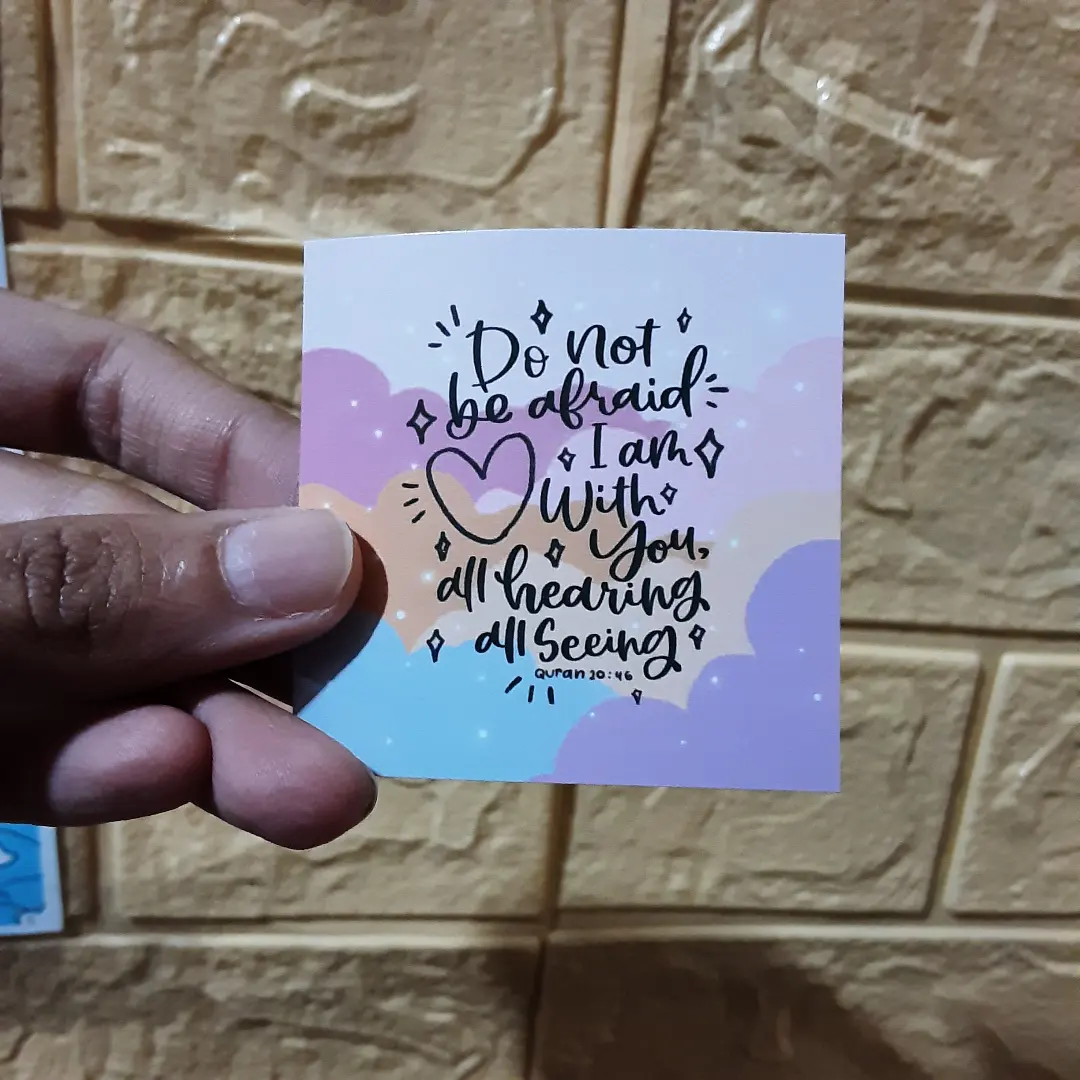 Do not
be afraid
I am
With
You,
all hearing
all Seeing
Quran 20:46